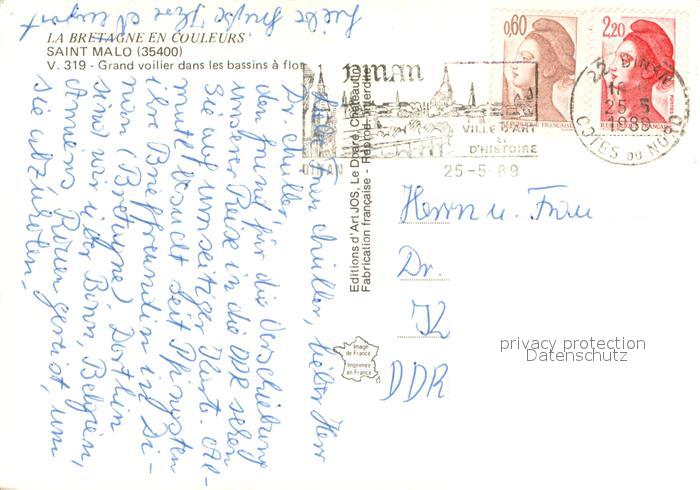 LA BRETAGNE EN COULEURS
SAINT MALO (35400)
V. 319 - Grand voilier dans les bassins à flot
Editions d'Art JOS, Le Doaré, Châteaulin
Fabrication française - Reprod. interdite
Image
de France
Imprimée
en France
0,60
2,20
DINAN
VILLE D'ART
ET
D'HISTOIRE
DINAN
25-5-89
22 DINAN
25 5
1989
COTES DU NORD
Liebe Frau Chuller, lieber Herr
Dr. Chuller,
den Grund für die Verschiebung
unserer Reise in die DDR sehen
Sie auf umseitiger Karte.
mute besucht seit Pfingsten
ihre Brieffreundin in Di-
nan (Bretagne). Dorthin
sind wir über Bonn, Belgien,
Amiens, Rouen gereist, um
sie abzuholen.
Liebe Grüße Ihre
Herrn u. Frau
Dr.
DDR
privacy protection
Datenschutz